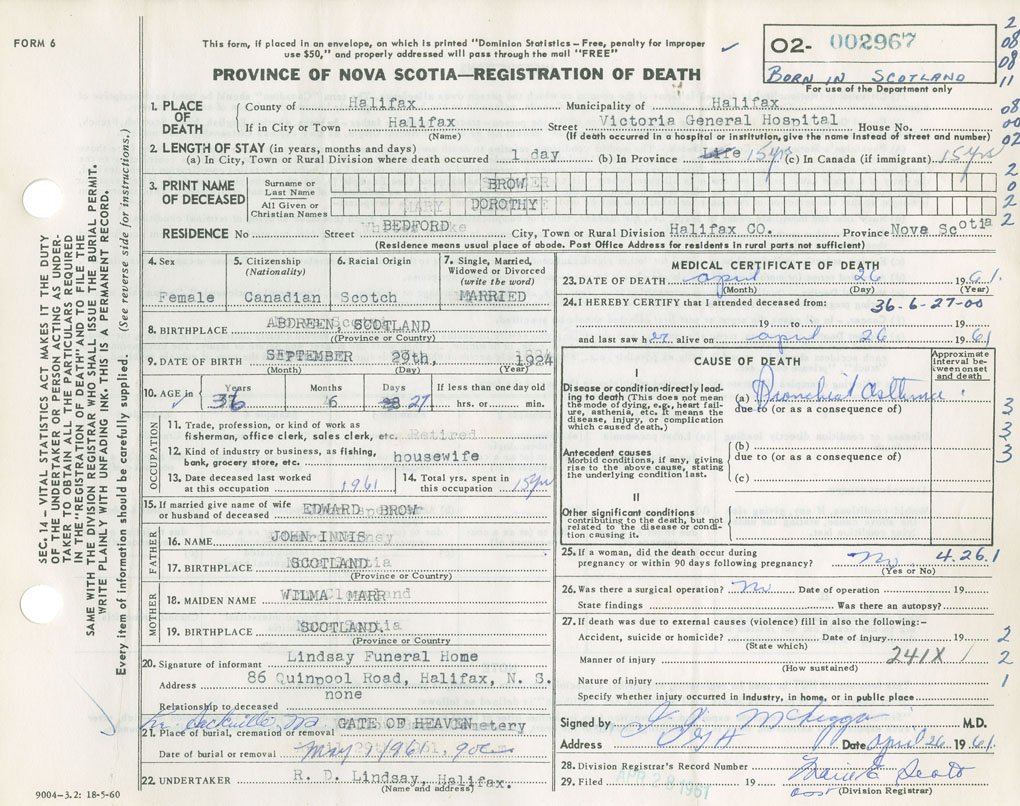 FORM 6
This form, if placed in an envelope, on which is printed "Dominion Statistics – Free, penalty for improper
use $50," and properly addressed will pass through the mail "FREE"
PROVINCE OF NOVA SCOTIA—REGISTRATION OF DEATH
02- 002967
BORN IN SCOTLAND
For use of the Department only
1. PLACE OF DEATH
County of Halifax Municipality of Halifax
If in City or Town Halifax Street Victoria General Hospital House No.
(Name) (If death occurred in a hospital or institution, give the name instead of street and number)
2. LENGTH OF STAY (in years, months and days)
(a) In City, Town or Rural Division where death occurred 1 day (b) In Province Life 15 yrs (c) In Canada (if immigrant) 15 yrs
3. PRINT NAME OF DECEASED
Surname or Last Name BROW
All Given or Christian Names DOROTHY
RESIDENCE No Street BEDFORD City, Town or Rural Division Halifax CO. Province Nova Scotia
(Residence means usual place of abode. Post Office Address for residents in rural parts not sufficient)
4. Sex
Female
5. Citizenship
(Nationality)
Canadian
6. Racial Origin
Scotch
7. Single, Married,
Widowed or Divorced
(write the word)
MARRIED
8. BIRTHPLACE ABDREEN, SCOTLAND
((Province or Country)
9. DATE OF BIRTH SEPTEMBER 29th, 1924
(Month) (Day) (Year)
10. AGE in Years 36 Months 6 Days 27
If less than one day old
hrs. or min.
OCCUPATION
11. Trade, profession, or kind of work as
fisherman, office clerk, sales clerk, etc. Retired
12. Kind of industry or business, as fishing,
bank, grocery store, etc. housewife
13. Date deceased last worked
at this occupation 1961
14. Total yrs. spent in
this occupation 15 yrs
15. If married give name of wife
or husband of deceased EDWARD BROW
FATHER
16. NAME JOHN INNIS
17. BIRTHPLACE SCOTLAND
(Province or Country)
MOTHER
18. MAIDEN NAME WILMA MARR
19. BIRTHPLACE SCOTLAND.
(Province or Country
20. Signature of informant Lindsay Funeral Home
Address 86 Quinpool Road, Halifax, N. S.
Relationship to deceased none
21. Place of burial, cremation or removal GATE OF HEAVEN Cemetery
Date of burial or removal May 1961
22. UNDERTAKER R. D. Lindsay, Halifax.
(Name and address)
9004–3.2: 18-5-60
MEDICAL CERTIFICATE OF DEATH
23. DATE OF DEATH April 26 1961.
(Month) (Day) (Year)
24. I HEREBY CERTIFY that I attended deceased from: 36-6-27-00
19 to 19
and last saw her alive on April 26 1961
CAUSE OF DEATH
Approximate
interval be-
tween onset
and death
I
Disease or condition directly lead-
ing to death (This does not mean
the mode of dying, e.g., heart failure, asthenia, etc. It means the
disease, injury, or complication
which caused death.)
(a) Bronchial Asthma
due to (or as a consequence of)
Antecedent causes
Morbid conditions, if any, giving
rise to the above cause, stating
the underlying condition last.
(b)
due to (or as a consequence of)
(c)
II
Other significant conditions
contributing to the death, but not
related to the disease or condi-
tion causing it.
25. If a woman, did the death occur during
pregnancy or within 90 days following pregnancy? No 4.26.1
(Yes or No)
26. Was there a surgical operation? No Date of operation 19
State findings Was there an autopsy?
27. If death was due to external causes (violence) fill in also the following:–
Accident, suicide or homicide? Date of injury 19
(State which)
Manner of injury 241X
(How sustained)
Nature of injury
Specify whether injury occurred in industry, in home, or in public place
Signed by M.D.
Address Date April 26 1961.
28. Division Registrar's Record Number
29. Filed APR 28 1961 29.
(Division Registrar)
SEC. 14 – VITAL STATISTICS ACT MAKES IT THE DUTY
OF THE UNDERTAKER OR PERSON ACTING AS UNDER-
TAKER TO OBTAIN ALL THE PARTICULARS REQUIRED
IN THE "REGISTRATION OF DEATH" AND TO FILE THE
SAME WITH THE DIVISION REGISTRAR WHO SHALL ISSUE THE BURIAL PERMIT.
WRITE PLAINLY WITH UNFADING INK. THIS IS A PERMANENT RECORD.
Every item of information should be carefully supplied. (See reverse side for instructions.)
2
08
08
11
08
00
02
2
0
2
2
3
3
3
3
2
2
1